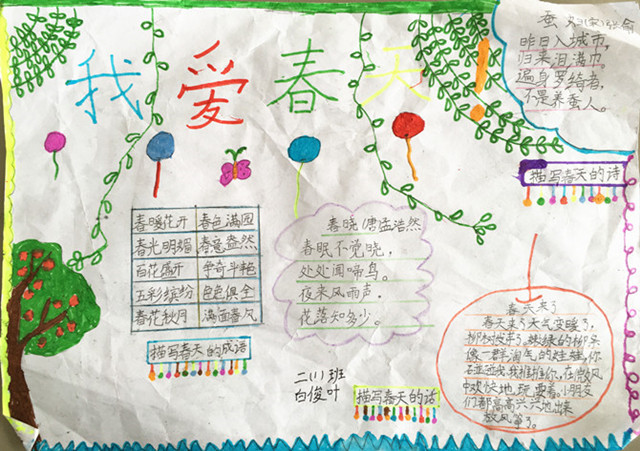 我爱春天！
蚕
昨日入城市，
归来泪满巾
遍身罗绮者，
不是养蚕人。
描写春天的诗
春暖花开 春色满园
春光明媚 春意盎然
百花盛开 争奇斗艳
五彩缤纷 色色俱全
春花秋月 满面春风
描写春天的成语
春晓（唐孟浩然
春眠不觉晓，
处处闻啼鸟。
夜来风雨声，
花落知多少。
二（1）班
白俊叶
描写春天的诗
春天来了
春天来了天气变暖了，
柳树发芽了，嫩绿的柳头
像一群淘气的娃娃，你
我推推你，在微风
中欢快地玩耍着，小朋友
们都高高兴兴地出来
放风筝了。